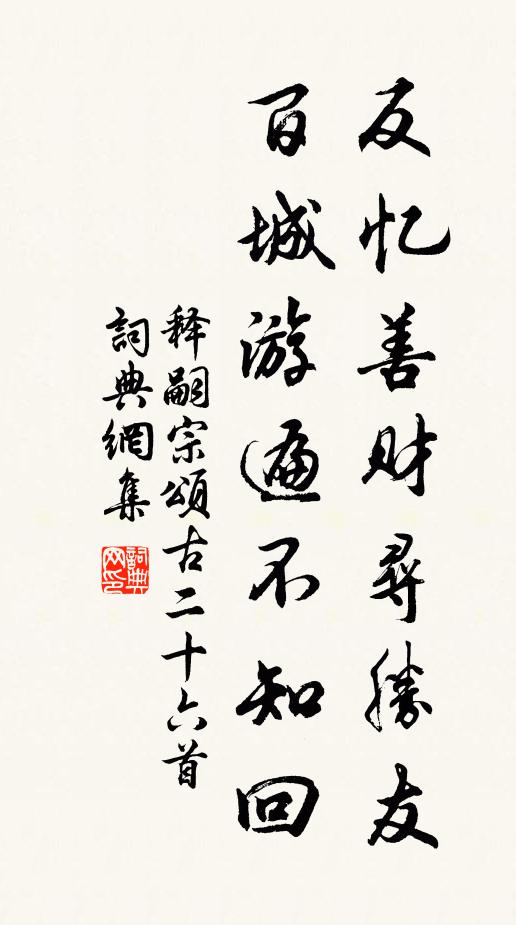 反忆善财寻勝友
百城游遍不知回
释嗣宗颂古二十六首
詞典網集
詞典网印